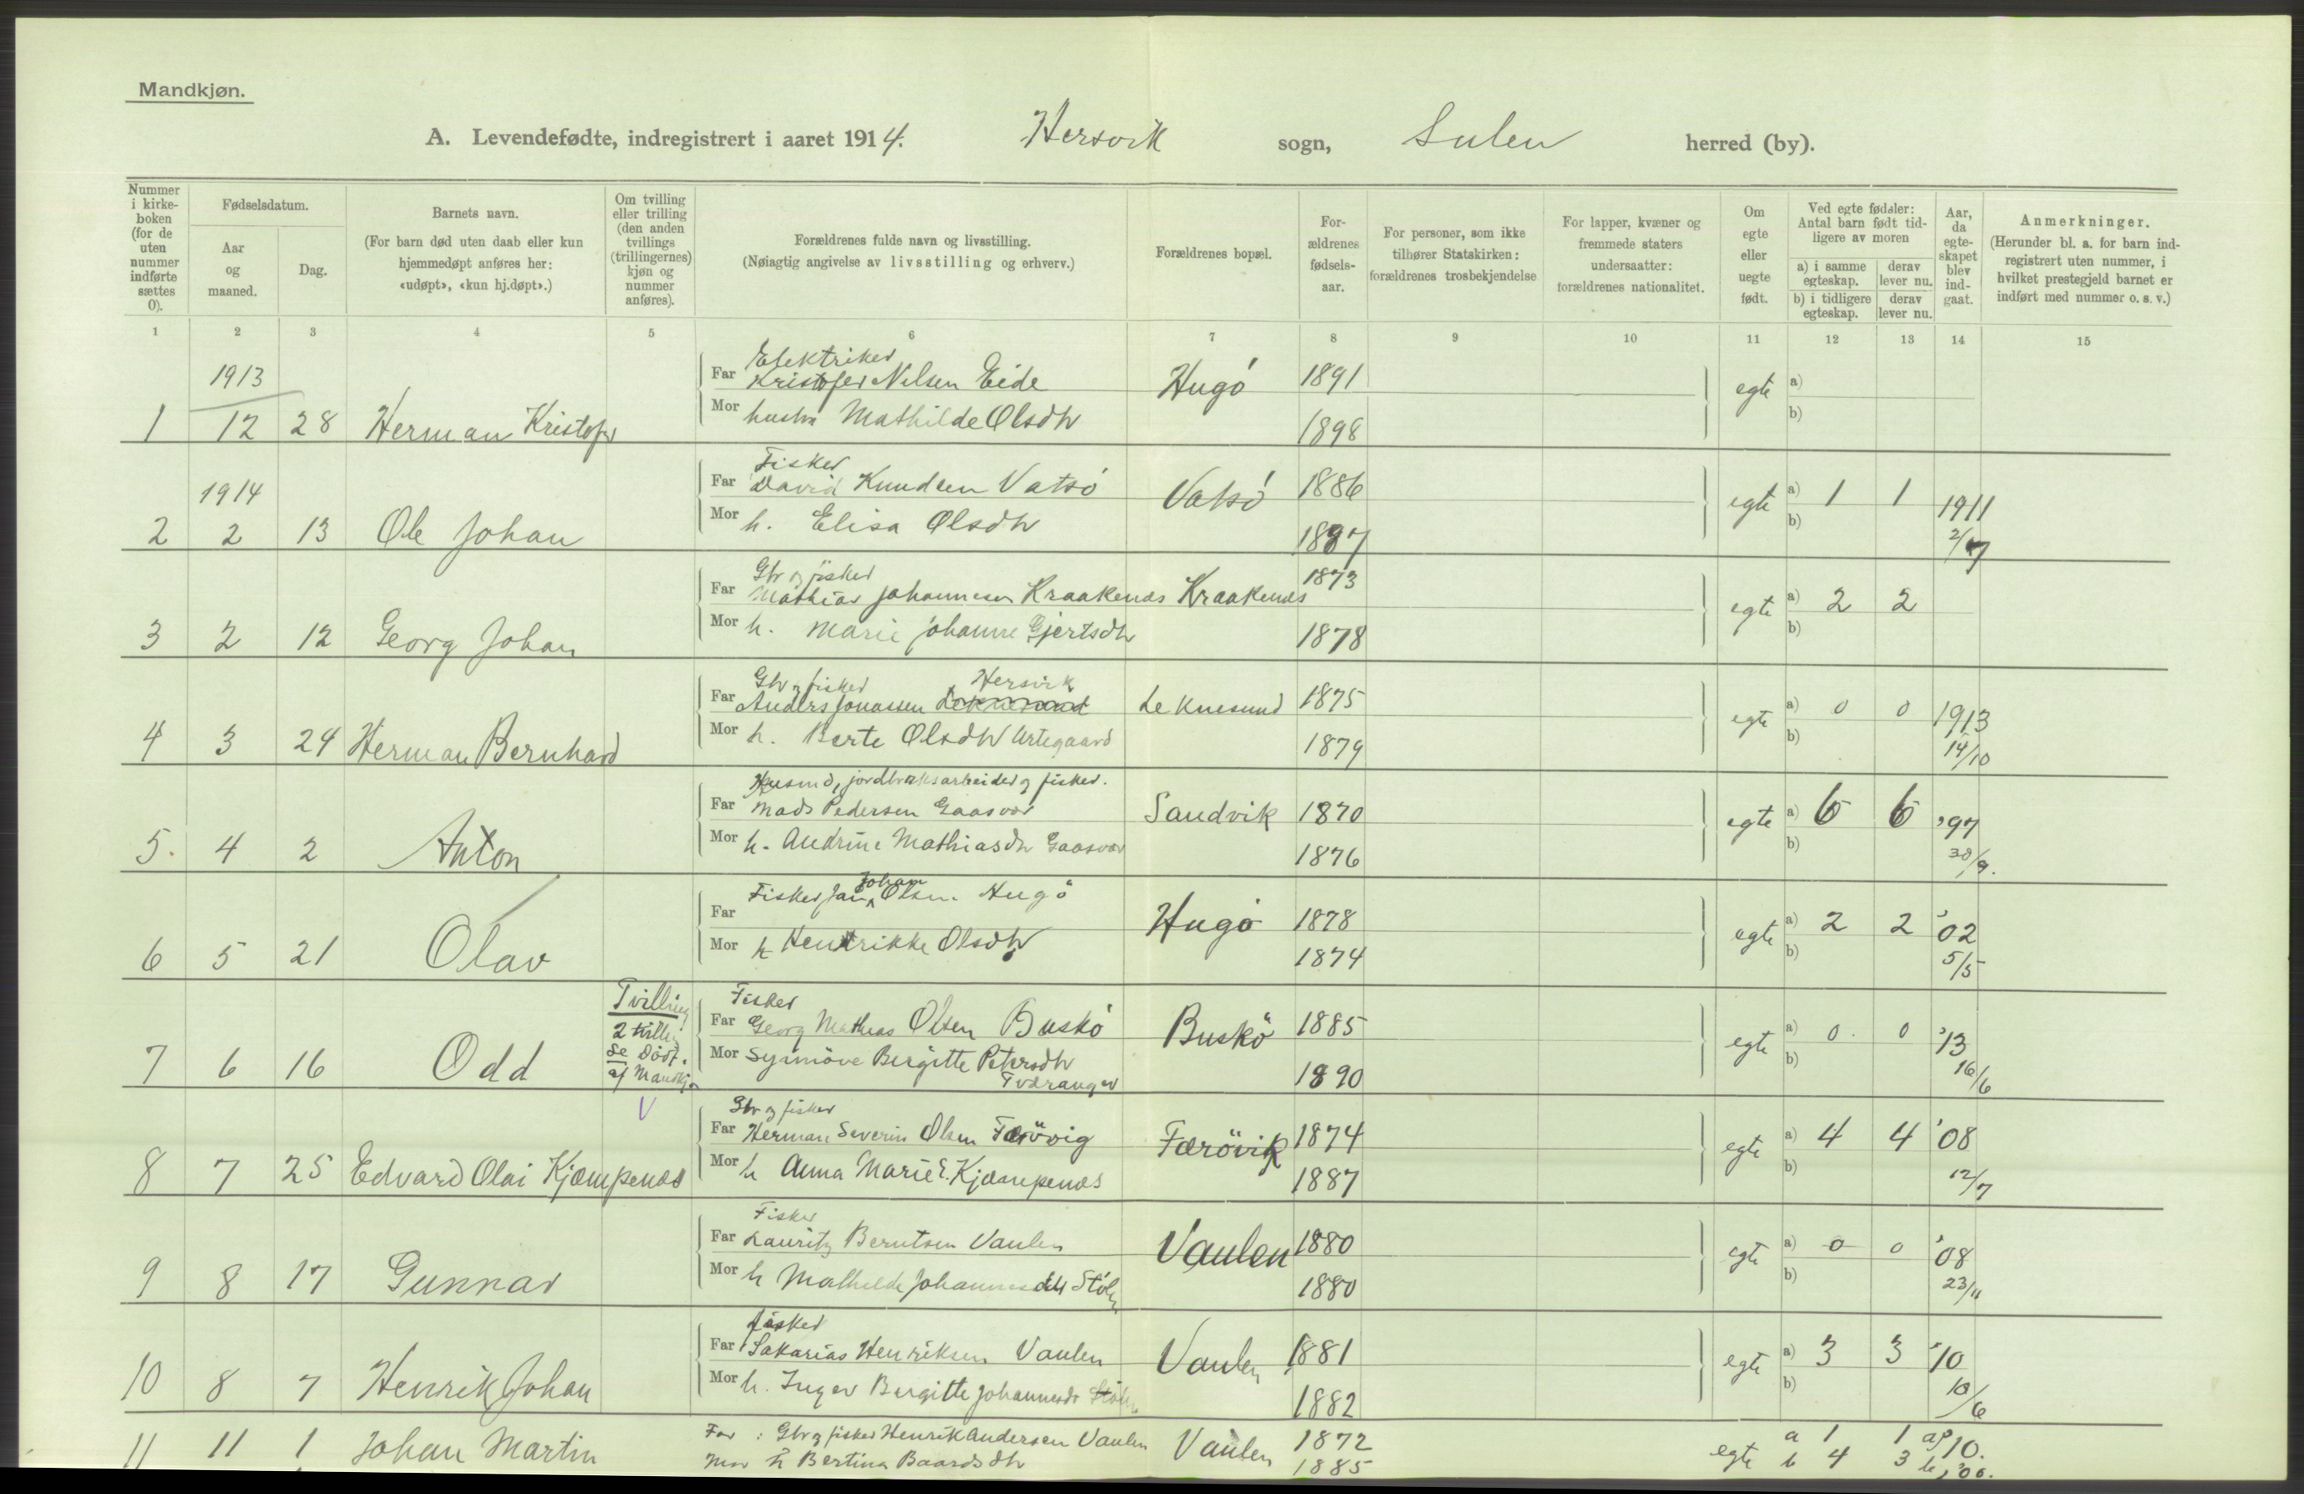 Mandkjøn.
A. Levendefødte, indregistrert i aaret 1914. Hersvik sogn, Sulen herred (by).
Nummer i kirkeboken (for de uten nummer indførte sættes 0).
Fødselsdatum.
Aar og maaned.
Dag.
Barnets navn.
(For barn død uten daab eller kun hjemmedøpt anføres her: «udøpt», «kun hj.døpt».)
Om tvilling eller trilling (den anden tvillings (trillingernes) kjøn og nummer anføres).
Forældrenes fulde navn og livsstilling.
(Nøiagtig angivelse av livsstilling og erhverv.)
Forældrenes bopæl.
Forældrenes fødselsaar.
For personer, som ikke tilhører Statskirken: forældrenes trosbekjendelse
For lapper, kvæner og fremmede staters undersaatter: forældrenes nationalitet.
Om egte eller uegte født.
Ved egte fødsler: Antal barn født tidligere av moren
a) i samme egteskap. derav lever nu.
b) i tidligere egteskap. derav lever nu.
Aar, da egteskapet blev indgaat.
Anmerkninger.
(Herunder bl. a. for barn indregistrert uten nummer, i hvilket prestegjeld barnet er indført med nummer o. s. v.)
1 2 3 4 5 6 7 8 9 10 11 12 13 14 15
1913
Elektriker
Far Kristofer Nilsen Eide Hugö 1891 egte a)
1 12 28 Herman Kristofer Mor hustru Mathilde Olsdtr 1898 b)
1914
Fisker
Far David Knudsen Vatsö Vatsö 1886 egte a) 1 1 1911
2 2 13 Ole Johan Mor h. Elisa Olsdtr 1887 b) 2/7
Gbr og fisker
Far Mathias Johannesen Kraakenæs Kraakenæs 1873 egte a) 2 2
3 2 12 Georg Johan Mor h. Marie Johanne Gjertsdtr 1878 b)
Gbr og fisker Hersvik
Far Anders Jonassen Leknesund 1875 egte a) 0 0 1913
4 3 24 Herman Bernhard Mor h. Berte Olsdtr Artegaard 1879 b) 14/10
Husmd, jordbruksarbeider og fisker.
Far Mads Pedersen Gaasvær Sandvik 1870 egte a) 6 6 '97
5. 4 2 Anton Mor h. Andrine Mathiasdtr Gaasvær 1876 b) 30/9.
Johan
Far Fisker Jan Olsen Hugö Hugö 1878 egte a) 2 2 '02
6 5 21 Olav Mor h Hendrikke Olsdtr 1874 b) 5/5
Tvilling
2 tvilli
se Död.
af Mandkjø
V
Fisker
Far Georg Mathias Olsen Buskö Buskö 1885 egte a) 0. 0 '13
7 6 16 Odd Mor Synnöve Birgitte Petersdtr Tværanger 1890 b) 16/6
Gbr og fisker
Far Herman Severin Olsen Færövig Færövik 1874 egte a) 4 4 '08
8 7 25 Edvard Olai Kjæmpenæs Mor h Anna Marie E. Kjæmpenæs 1887 b) 12/7
Fisker
Far Lauritz Berntsen Vaulen Vaulen 1880 egte a) 0 0 '08
9 8 17 Gunnar Mor h Mathilde Johannesdtr Stölen 1880 b) 23/11
fisker
Far Sakarias Henriksen Vaulen Vaulen 1881 egte a) 3 3 '10
10 8 7 Henrik Johan Mor h. Inger Birgitte Johannesdtr 1882 b) 10/6
11 11 1 Johan Martin Far: Gbr og fisker Henrik Andersen Vaulen Vaulen 1872 egte a 1 1 a) '10.
Mor h Bertina Baardsdtr 1885 b 4 3 b, '06.